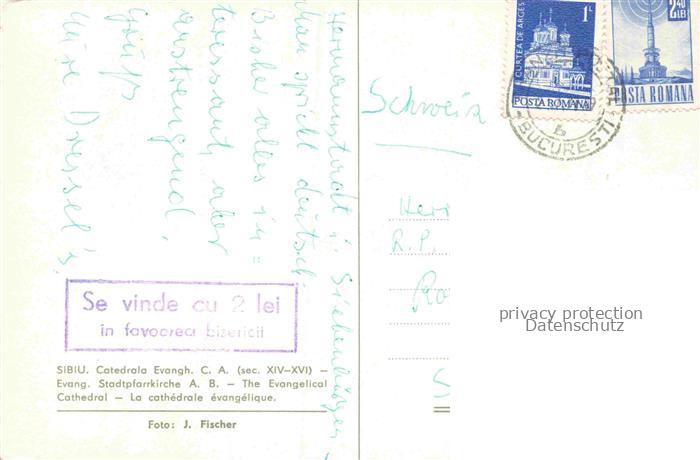 Hermannstadt i. Siebenbürgen
Man spricht deutsch
Bisher alles in=
teressant, aber
anstrengend.
Gruß
Schweiz
Herr
R.P.
CURTEA DE ARGES
1L
POSTA ROMANA
2,40
LEI
POSTA ROMANA
BUCURESTI
Se vinde cu 2 lei
in favoarea bisericii
SIBIU. Catedrala Evangh. C. A. (sec. XIV–XVI) –
Evang. Stadtpfarrkirche A. B. – The Evangelical
Cathedral – La cathédrale évangélique.
Foto: J. Fischer
privacy protection
Datenschutz